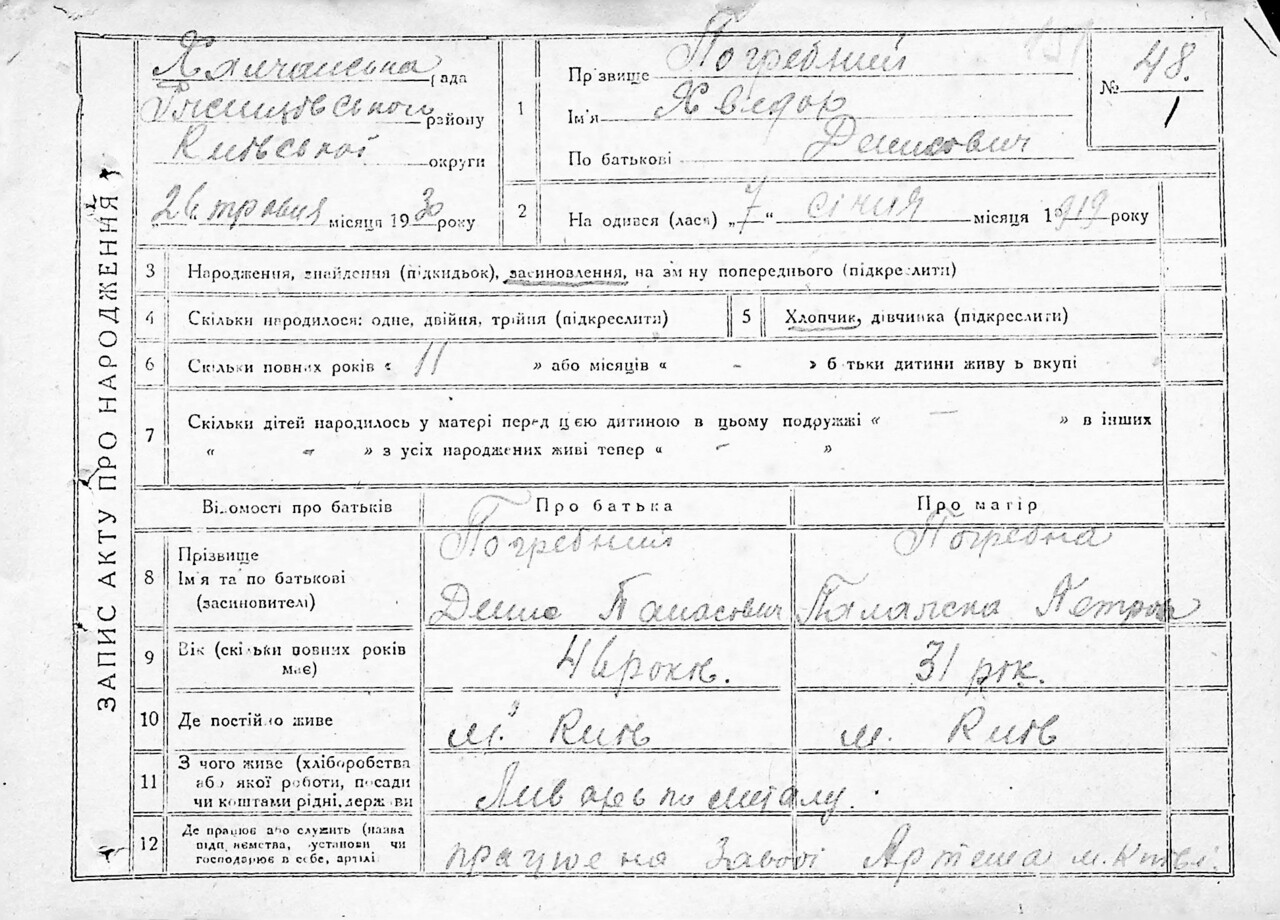 ЗАПИС АКТУ ПРО НАРОДЖЕННЯ
рада
району
Київської округи
„26 травня місяця 1930 року
1
Прізвище Погребний
Ім'я Хведор
По батькові Денисович
№ 48.
1
2
На одився (лася) „7“ січня місяця 1919 року
3
Народження, знайдення (підкидьок), засиновлення, на зм ну попереднього (підкреслити)
4
Скільки народилося: одне, двійня, трійня (підкреслити)
5
Хлопчик, дівчинка (підкреслити)
6
Скільки повних років « 11 » або місяців « - » б тьки дитини живу ь вкупі
7
Скільки дітей народилось у матері перед цією дитиною в цьому подружжі « — » в інших
« - » з усіх народжених живі тепер « - »
Відомості про батьків
Про батька
Про матір
8
Прізвище
Ім'я та по батькові
(засиновителі)
Погребний
Денис Панасович
Погребна
Паламска Петров
9
Вік (скільки повних років
має)
46 роки.
31 рік.
10
Де постійно живе
м. Київ
м. Київ
11
З чого живе (хліборобства
або якої роботи, посади
чи коштами рідні, держави
Ливарь по металу.
12
Де працює або служить (назва
підп иємства, установи чи
господарює в себе, артілі
працює на Заводі Артема м. Київі.